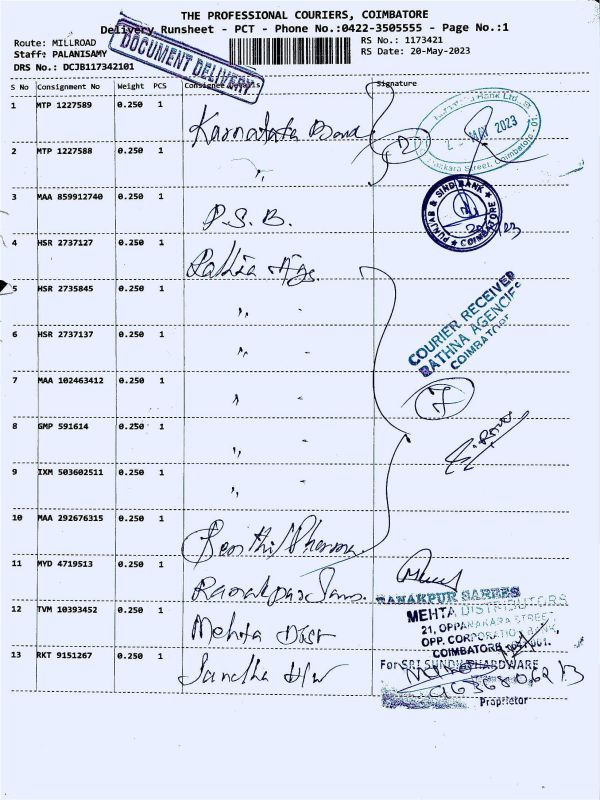 THE PROFESSIONAL COURIERS, COIMBATORE
Delivery Runsheet - PCT - Phone No.:0422-3505555 - Page No.:1
Route: MILLROAD
RS No.: 1173421
Staff: PALANISAMY
RS Date: 20-May-2023
DRS No.: DCJB117342101
DOCUMENT DELIVERY
S No Consignment No Weight PCS Consignee Details Signature
1 MTP 1227589 0.250 1 Karnataka Bank
2 MTP 1227588 0.250 1 "
MAY 2023
3 MAA 859912740 0.250 1 P.S.B.
PUNJAB & SIND BANK
COIMBATORE
4 HSR 2737127 0.250 1
5 HSR 2735845 0.250 1 " "
COURIER RECEIVED
RATHNA AGENCIES
COIMBATOR
6 HSR 2737137 0.250 1 " "
7 MAA 102463412 0.250 1 " "
7
8 GMP 591614 0.250 1 " "
9 IXM 503602511 0.250 1 " "
10 MAA 292676315 0.250 1 Senthil Pharma
11 MYD 4719513 0.250 1
RANAKPUR SAREES
12 TVM 10393452 0.250 1 Mehta Dist
MEHTA DISTRIBUTORS
21, OPPANAKARA STREET,
OPP. CORPORATION
COIMBATORE
13 RKT 9151267 0.250 1
For SRI HARDWARE
Proprietor